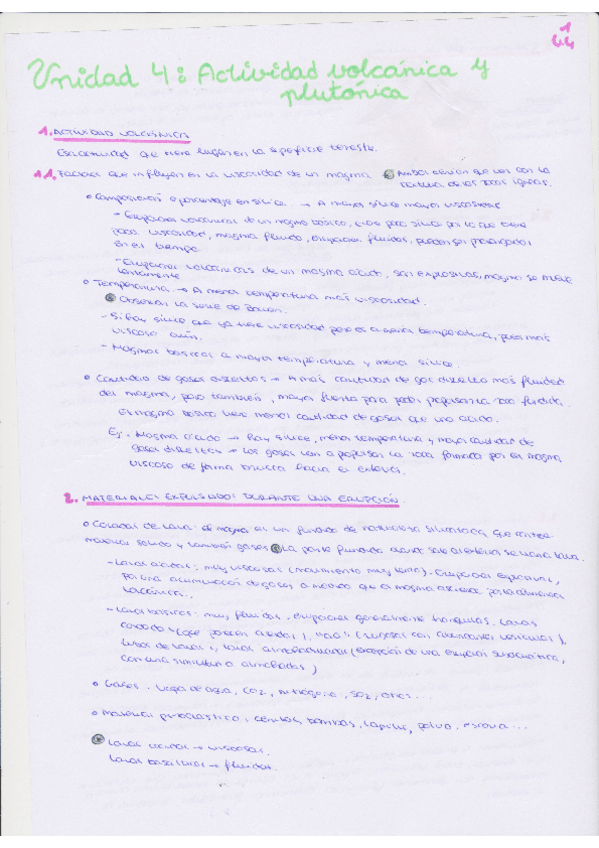 1
U.4
Unidad 4: Actividad volcánica y
plutónica
1. ACTIVIDAD VOLCÁNICA
Es la actividad que tiene lugar en la superficie terrestre.
1.1. Factores que influyen en la viscosidad de un magma. Ambos tienen que ver con la
textura de las rocas ígneas.
Composición o porcentaje en sílice → A mayor sílice mayor viscosidad
- Erupciones volcánicas de un magma básico, tiene poco sílice por lo que tiene
poca viscosidad, magma fluido, erupciones fluidas, pueden ser prolongadas
en el tiempo.
- Erupciones volcánicas de un magma ácido, son explosivas, magma se mueve
lentamente
Temperatura → A menor temperatura más viscosidad.
Observar la serie de Bowen.
- Si hay sílice que ya tiene viscosidad pero es a menor temperatura, pues más
viscoso aún.
- Magmas básicos a mayor temperatura y menor sílice.
Cantidad de gases disueltos → A más cantidad de gas disuelto más fluidez
del magma, pero también, mayor fuerza para poder propulsar la roca fundida.
El magma básico tiene menor cantidad de gases que uno ácido.
Ej: Magma ácido → hay sílice, menor temperatura y mayor cantidad de
gases disueltos → los gases van a propulsar la roca formada por el magma
viscoso de forma brusca hacia el exterior.
2. MATERIALES EXPULSADOS DURANTE UNA ERUPCIÓN
Coladas de lava: el magma es un fundido de naturaleza silicatada, que contiene
material sólido y también gases La parte fundida cuando sale al exterior se llama lava.
- Lavas ácidas: muy viscosas (movimiento muy lento). Erupciones explosivas,
por una acumulación de gases a medida que el magma asciende por la chimenea
volcánica.
- Lavas básicas: muy fluidas, erupciones generalmente tranquilas. Lavas
cordadas (que parecen cuerdas), "aa" (rugosas con abundantes vesículas),
tubos de lavas, lavas almohadilladas (erupción de una erupción subacuática,
con una similitud a almohadas)
Gases: Vapor de agua, CO2, nitrógeno, SO2, otros...
Material piroclástico: cenizas, bombas, lapilli, polvo, escoria...
Lavas ácidas → viscosas.
Lavas basálticas → fluidas.